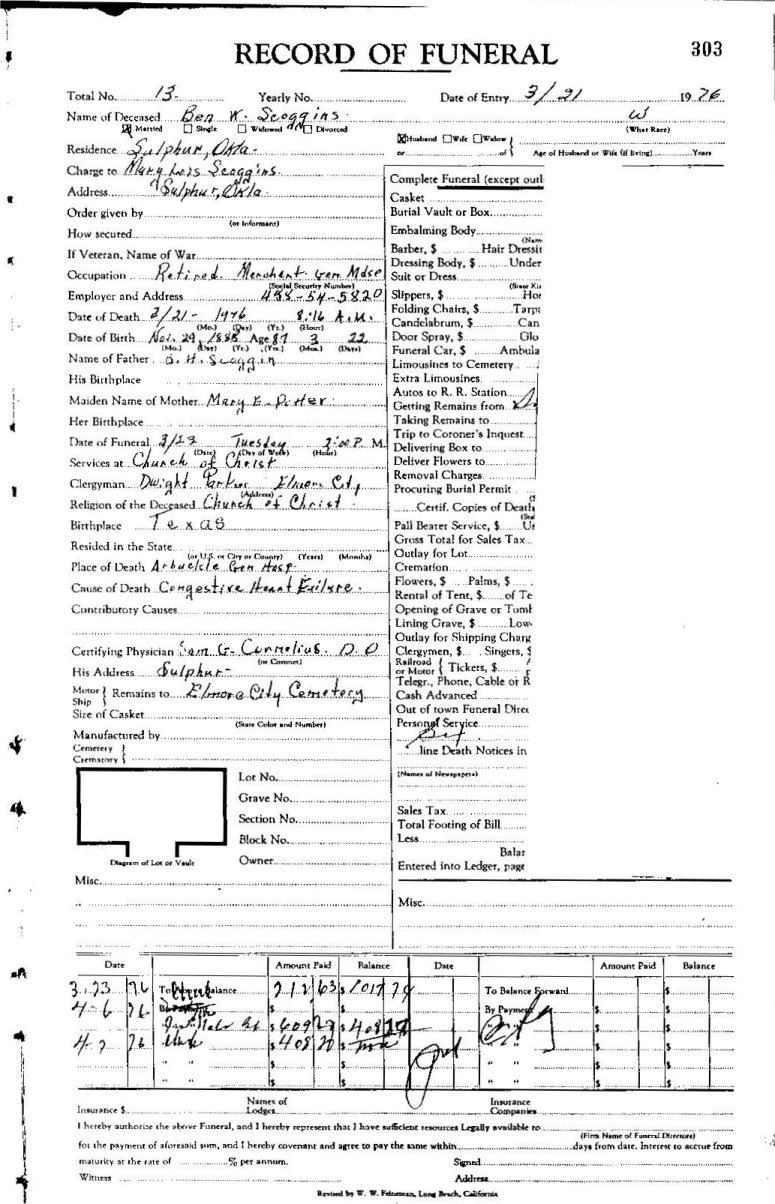 RECORD OF FUNERAL
303
Total No. 13- Yearly No. Date of Entry 3/21 1976
Name of Deceased Ben W. Scoggins W
Married Single Widowed Divorced (What Race)
Husband Wife Widow
or of Age of Husband or Wife (if living) Years
Residence Sulphur, Okla-
Charge to Mary Lois Scoggins
Address Sulphur, Okla.
Order given by
(or Informant)
How secured
If Veteran, Name of War
Occupation Retired. Merchant Gen Mdse
(Social Security Number)
Employer and Address 458-54-5820
Date of Death 3/21- 1976 8:16 A.M.
(Mo.) (Day) (Yr.) (Hour)
Date of Birth Nov. 29, 1888 Age 87 3 22
(Mo.) (Day) (Yr.) (Yrs.) (Mos.) (Days)
Name of Father B. H. Scoggin
His Birthplace
Maiden Name of Mother Mary E.
Her Birthplace
Date of Funeral 3/23 Tuesday 2:00 P. M
(Date) (Day of Week) (Hour)
Services at Church of Christ
Clergyman Dwight Parker Elmore City
(Address)
Religion of the Deceased Church of Christ
Birthplace Texas
Resided in the State
(or U.S. or City or County) (Years) (Months)
Place of Death Arbuckle Gen Hosp-
Cause of Death Congestive Heart Failure.
Contributory Causes
Certifying Physician Sam G. Cornelius. D.O
(or Coroner)
His Address Sulphur-
Motor Ship Remains to Elmore City Cemetery
Size of Casket
(State Color and Number)
Manufactured by
Cemetery
Crematory
Lot No.
Grave No.
Section No.
Block No.
Owner
Diagram of Lot or Vault
Misc.
Complete Funeral (except outl
Casket
Burial Vault or Box
Embalming Body
(Nam
Barber, $ Hair Dressit
Dressing Body, $ Under
Suit or Dress
(State Kin
Slippers, $ Hos
Folding Chairs, $ Tarpa
Candelabrum, $ Can
Door Spray, $ Glo
Funeral Car, $ Ambula
Limousines to Cemetery
Extra Limousines
Autos to R. R. Station
Getting Remains from
Taking Remains to
Trip to Coroner's Inquest
Delivering Box to
Deliver Flowers to
Removal Charges
Procuring Burial Permit
Certif. Copies of Death
Pall Bearer Service, $ Us
Gross Total for Sales Tax
Outlay for Lot
Cremation
Flowers, $ Palms, $
Rental of Tent, $ of Te
Opening of Grave or Tomb
Lining Grave, $ Low
Outlay for Shipping Charg
Clergymen, $ Singers, $
Railroad or Motor Tickers, $
Telegr., Phone, Cable or R
Cash Advanced
Out of town Funeral Direc
Personal Service
line Death Notices in
(Names of Newspapers)
Sales Tax
Total Footing of Bill
Less
Balar
Entered into Ledger, page
Misc.
Date Amount Paid Balance Date Amount Paid Balance
3.23 76 Balance 212 63 $ 1017 74 To Balance Forward $
4-6 76 By Payment $
$ 609 $ 408
4-7 76 $ 408 $
" " $ $ " " $ $
Insurance $ Names of Lodges Insurance Companies
I hereby authorize the above Funeral, and I hereby represent that I have sufficient resources Legally available to
(Firm Name of Funeral Directors)
for the payment of aforesaid sum, and I hereby covenant and agree to pay the same within days from date. Interest to accrue from
maturity at the rate of % per annum. Signed
Witness Address
Revised by W. W. Felneman, Long Beach, California